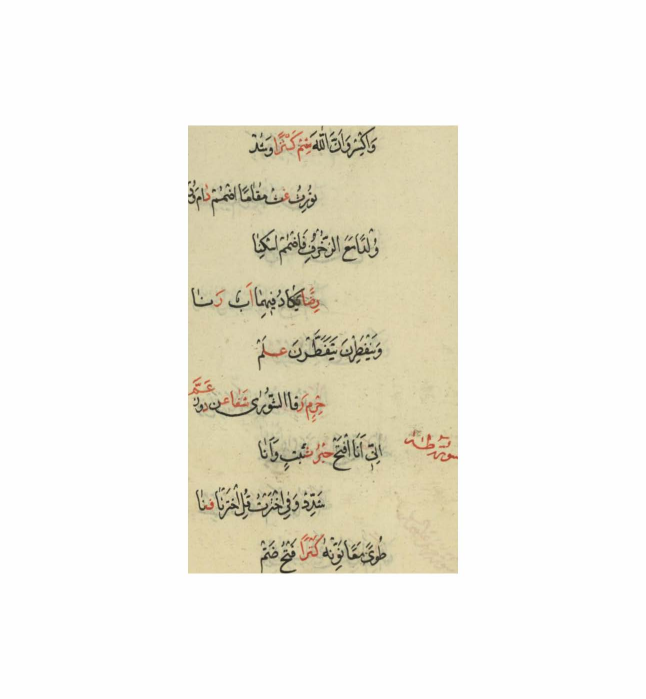 وَاكْسِرْ وَأَنَّ اللّٰهَ يَعُمُّ كَنْزًا وَشُدْ
نُورِثُ مَقَامًا اضْمُمْ دَامَ
وُلْدًا مَعَ الزُّخْرُفِ فَاضْمُمْ أَسْكِنَا
رِضًا يَكَادُ فِيهِمَا أَبٌ رَنَا
وَيَنْفَطِرْنَ يَتَفَطَّرْنَ عَلَمْ
حِرْمٌ رَقَا الشُّورَى شَفَا عَنْ دُونِ عَمّ
سورة طه
إِنِّي أَنَا افْتَحْ حَبْرُ ثَبْتٍ وَأَنَا
شَدِّدْ وَفِي اخْتَرْتُ قُلِ اخْتَرْنَا فِنَا
طُوًى مَعًا نَوِّنْهُ كَنْزًا فَتْحُ ضَمْ